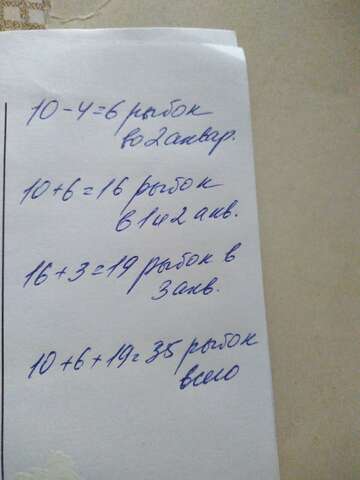 10-4=6 рыбок
во 2 аквар.
10+6=16 рыбок
в 1 и 2 акв.
16+3=19 рыбок в
3 акв.
10+6+19=35 рыбок
всего